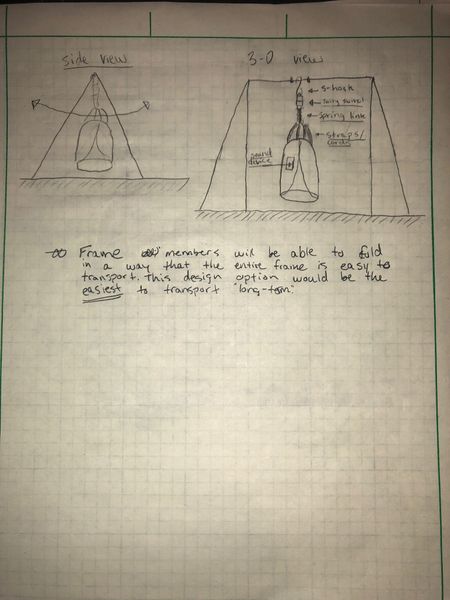 side view
3-D view
s-hook
safty swivel
spring link
straps/
cords
sound
device
Frame members will be able to fold
in a way that the entire frame is easy to
transport. This design option would be the
easiest to transport "long-term".